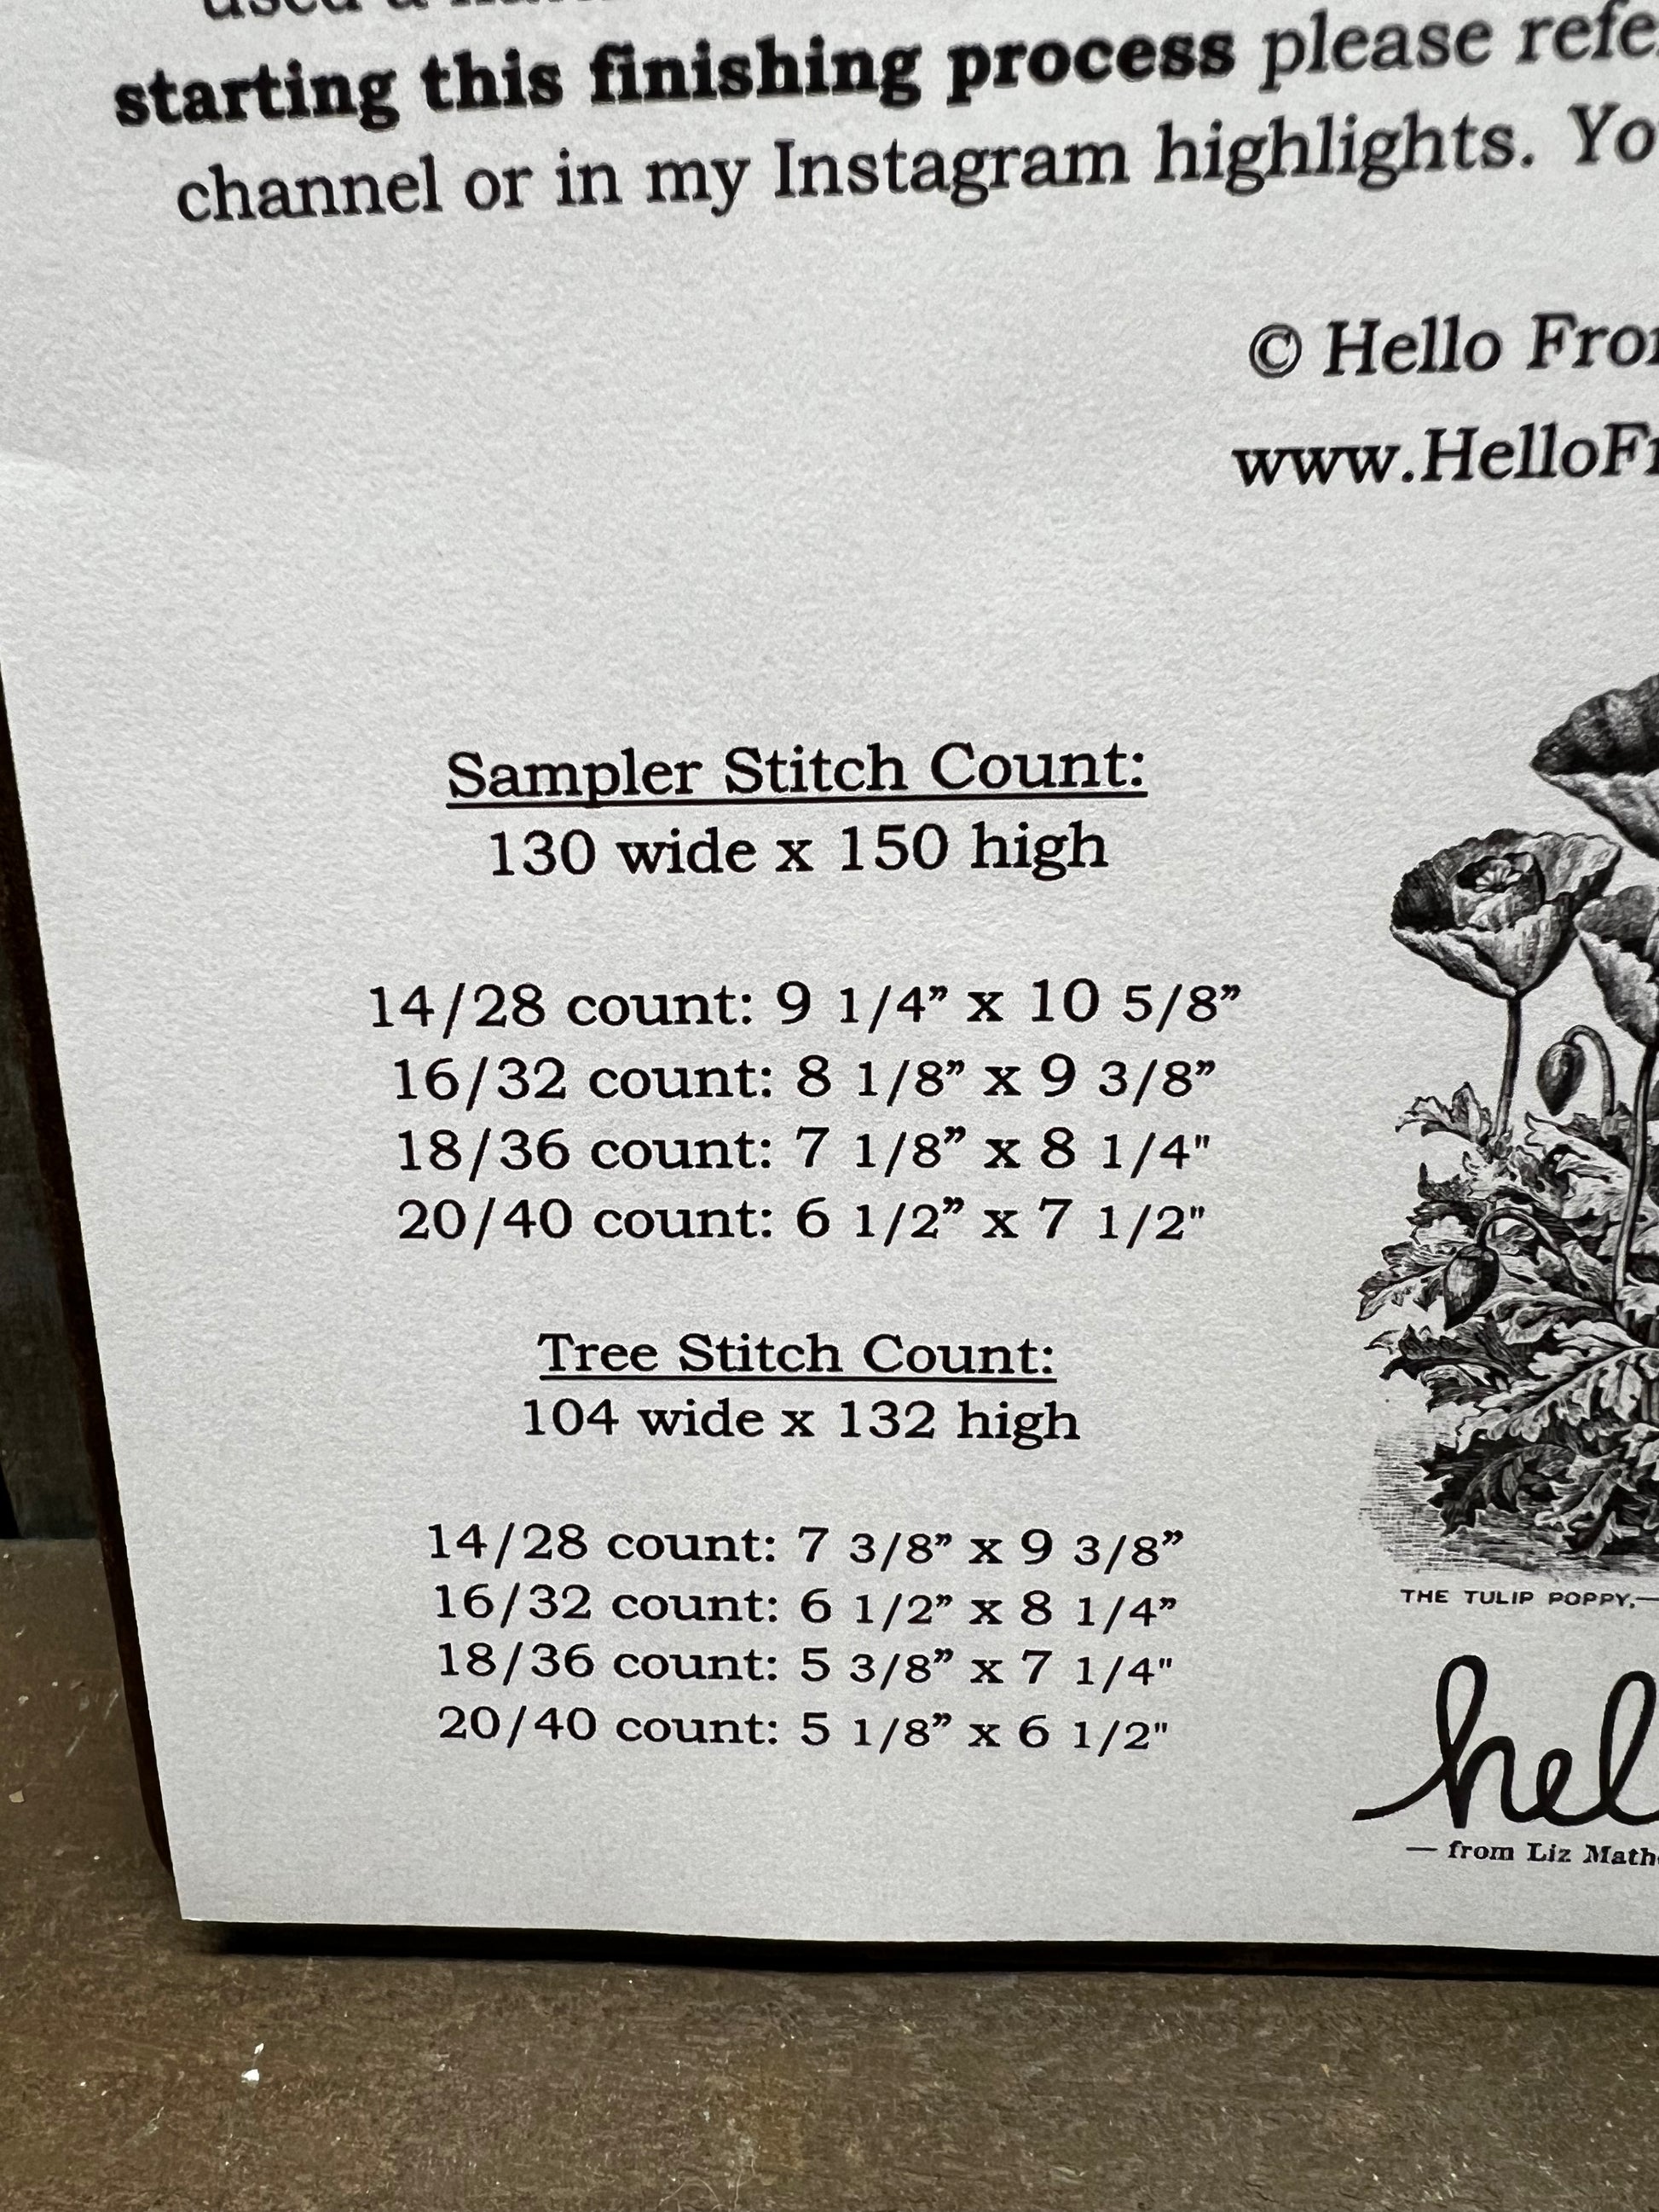 used a
starting this finishing process please
channel or in my Instagram highlights.
© Hello
Sampler Stitch Count:
130 wide x 150 high
14/28 count: 9 1/4” x 10 5/8”
16/32 count: 8 1/8” x 9 3/8”
18/36 count: 7 1/8” x 8 1/4"
20/40 count: 6 1/2” x 7 1/2"
Tree Stitch Count:
104 wide x 132 high
14/28 count: 7 3/8” x 9 3/8”
16/32 count: 6 1/2” x 8 1/4”
18/36 count: 5 3/8” x 7 1/4"
20/40 count: 5 1/8” x 6 1/2"
THE TULIP POPPY.—
— from Liz